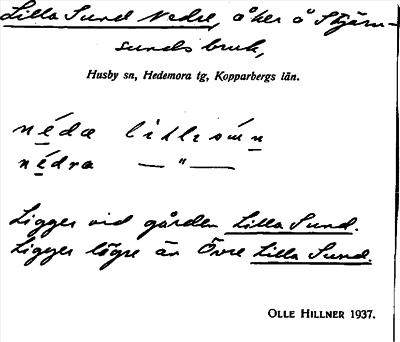 Lilla Sund Nedre, åker å Stjärn-
sunds bruk,
Husby sn, Hedemora tg, Kopparbergs län.
nédæ lillesún
nédra — " —
Ligger vid gården Lilla Sund.
Ligger lägre än Övre Lilla Sund.
OLLE HILLNER 1937.